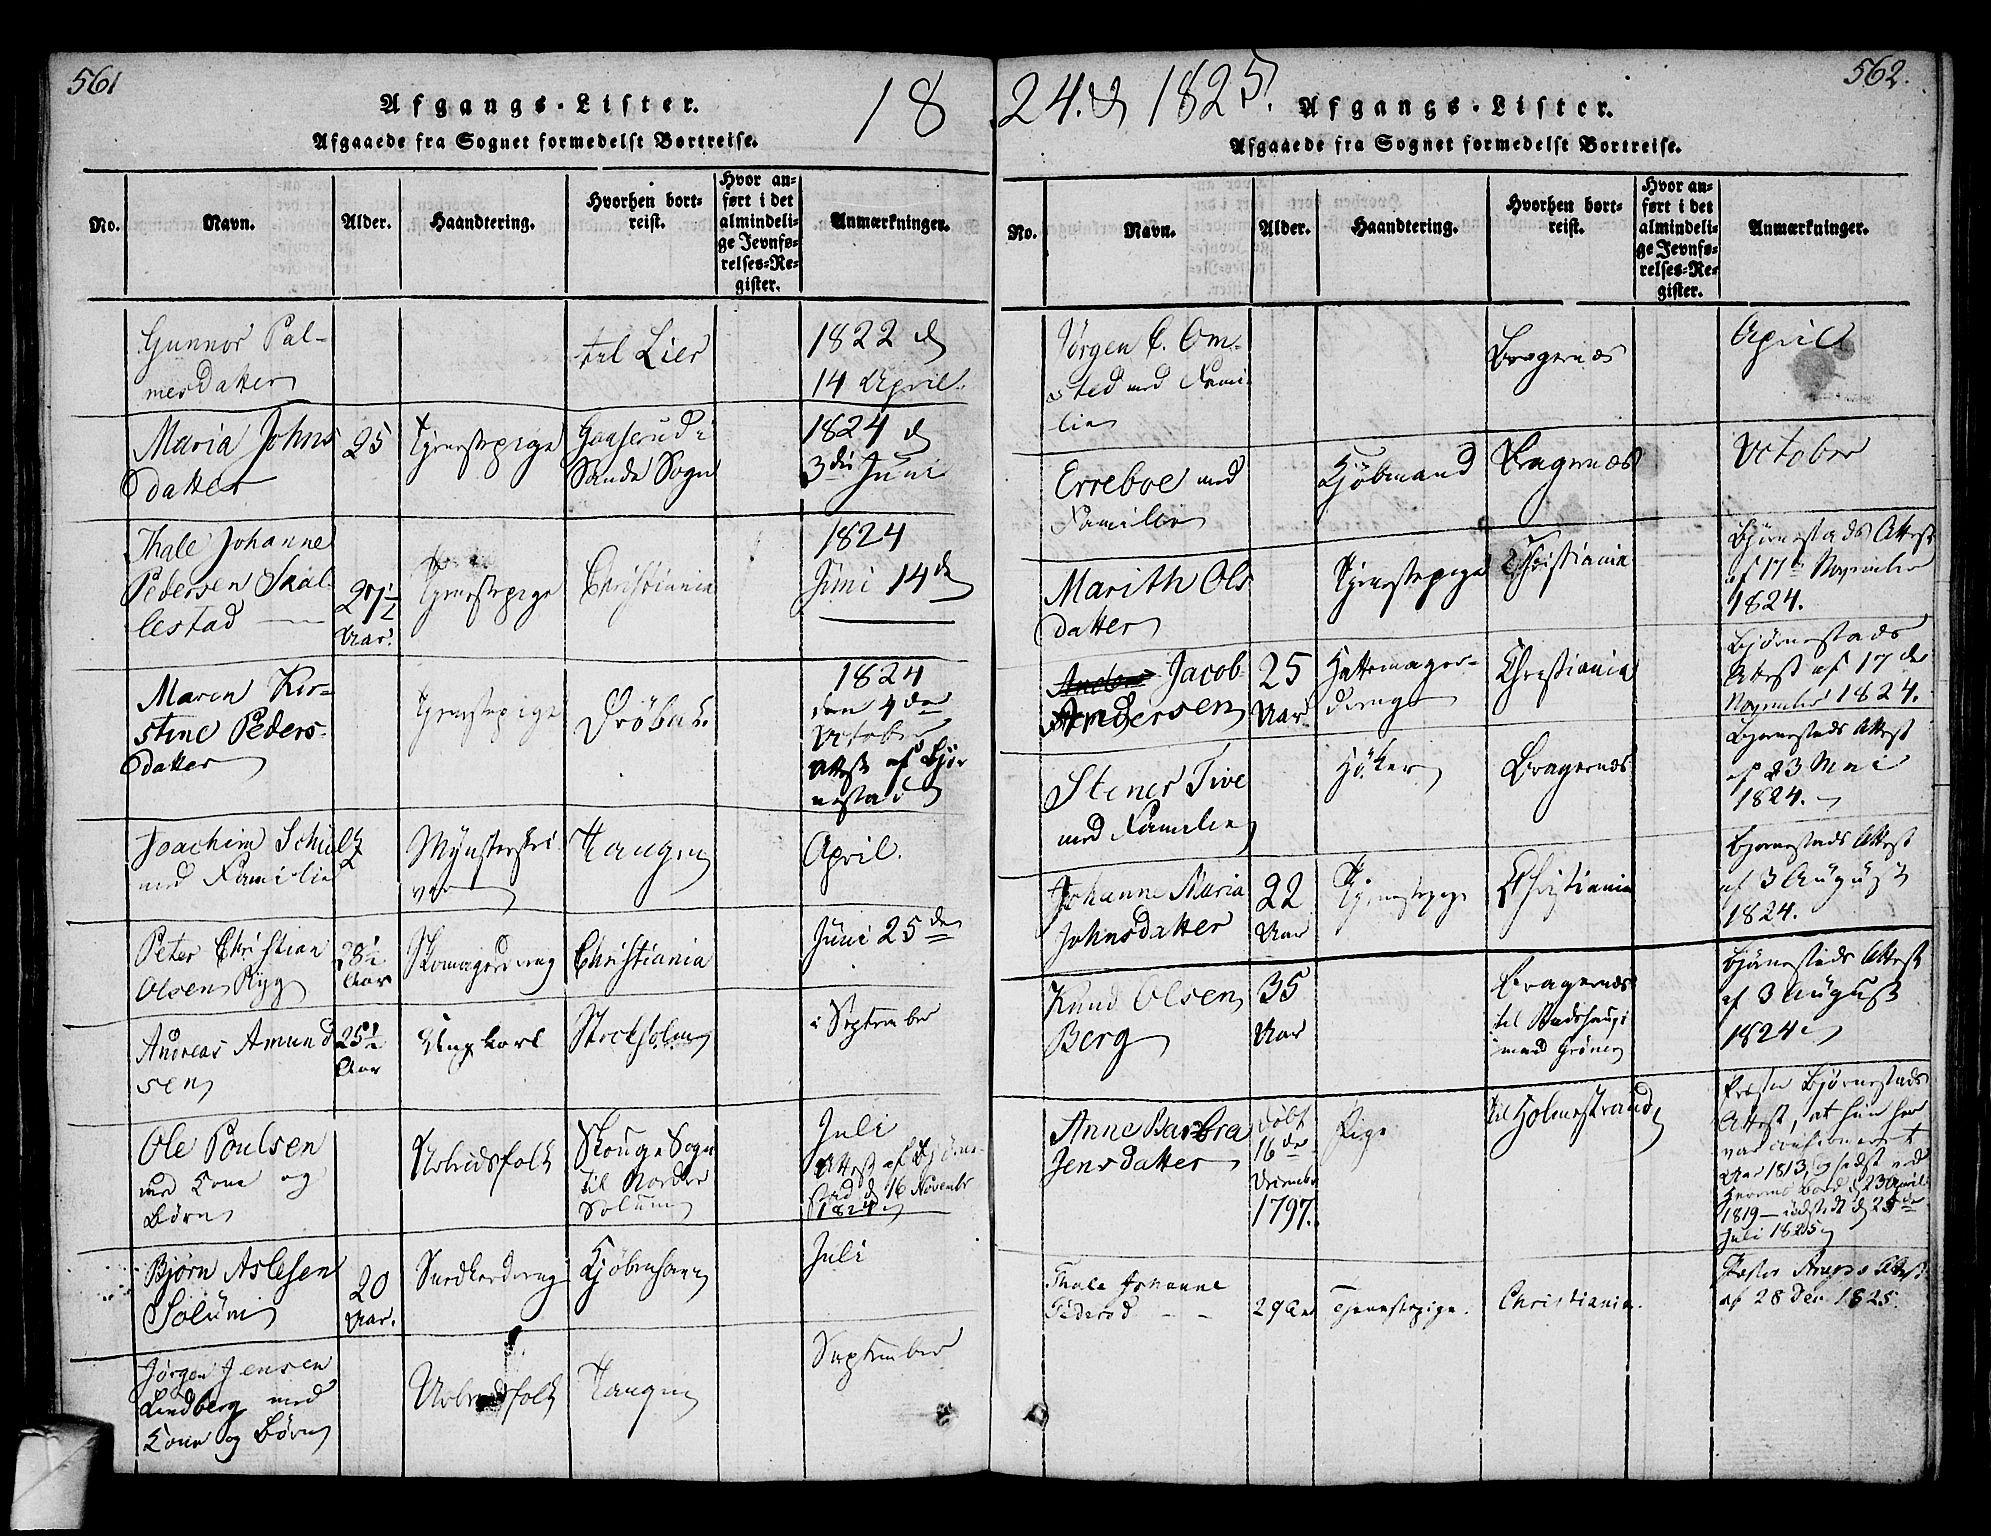 561
Afgangs-Lister.
Afgaaede fra Sognet formedelst Bortreise.
18
No.
Navn.
Alder.
Haandtering.
Hvorhen bort-
reist.
Hvor an-
ført i det
almindeli-
ge Jevnfø-
relses-Re-
gister.
Anmærkninger.
Gunnor Pal-
mesdatter
til Lier
1822 d
14 April.
Maria Johns
datter
25
Tjenestepige
Gaaserud i
Sande Sogn
1824 d
3die Juni
Thale Johanne
Pedersen Skal-
lestad
27½
Aar.
Tjenestepige
Christiania
1824
Juni 14de
Maren Kir-
stine Peders-
datter
Tjenestepige
Dröbak.
1824
den 4de
October
Attest af Bjør
nestad
Joachim Schultz
med Familie
Mynsterskri
ver
Tangen
April.
Peter Christian
Olsen Ryg
28½
Aar
Skomagerdreng
Christiania
Juni 25de
Andreas Amund
sen
25½
Aar
Ungkarl
Stockholm
i September
Ole Poulsen
med Kone og
Børn
Arbeidsfolk
Skouge Sogn
til Nordre
Solum
Juli
Attest af Bjørne-
stad d 16 November
1824
Bjørn Aslesen
Solum
20
Aar.
Snedkerdreng
Kjöbenhavn
Juli
Jørgen Jensen
Lindberg med
Kone og Børn
Arbeidsfolk
Tangen
September
562.
24. & 1825.
Afgangs-Lister.
Afgaaede fra Sognet formedelst Bortreise.
No.
Navn.
Alder.
Haandtering.
Hvorhen bort-
reist.
Hvor an-
ført i det
almindeli-
ge Jevnfø-
relses-Re-
gister.
Anmærkninger.
Jørgen C. Om-
sted med Fami-
lie
Bragernæs
April
Erreboe med
Familie
Kjöbmand
Bragernæs
October
Marith Ols
datter
Tjenestepige
Christiania
Bjørnestads Attest
af 17de November
1824.
Jacob
Andersen
25
Aar
Hattemager-
dreng
Christiania
Bjørnestads
Attest af 17de
November 1824.
Stener Tive
med Familie
Höker
Bragernæs
Bjørnestads Attest
af 23 Mai
1824.
Johanne Maria
Johnsdatter
22
Aar
Tjenestepige
Christiania
Bjørnestads Attest
af 3 August
1824.
Knud Olsen
Berg
35
Aar
Bragernæs
til
Bjørnestads Attest
af 3 August
1824
Anne Barbra
Jensdatter
Døbt
16de
Decembr
1797.
Pige
til Holmestrand
Præsten Bjørnestads
Attest, at hun her
var confirmeret
Aar 1813, og sidst ved
Herrens Bord d 23 April
1819 — udstedt d 25de
Juli 1825
Thale Johanne
Fiderød
29 Aar
Tjenestepige.
Christiania.
Præsten Arups Attest
af 28 Dec. 1825.